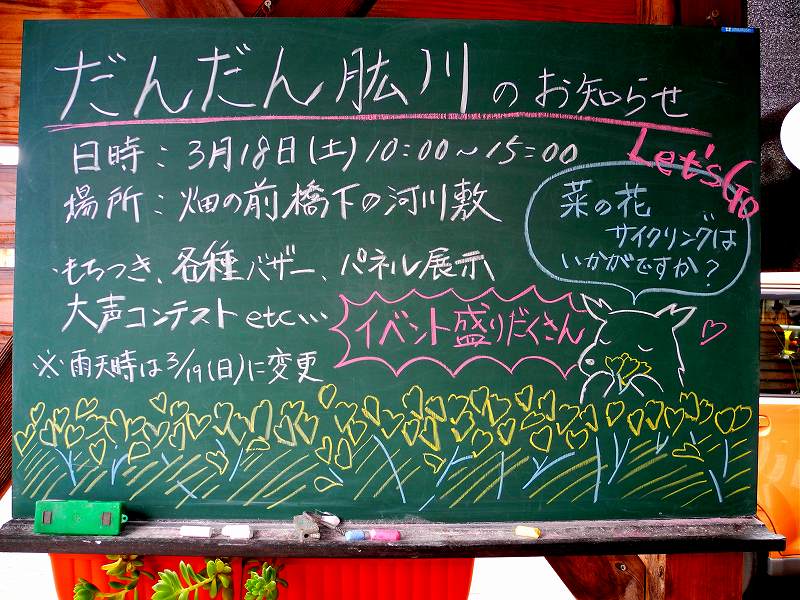 だんだん肱川のお知らせ
日時：3月18日(土)10:00～15:00
場所：畑の前橋下の河川敷
Let's Go
菜の花
サイクリングは
いかがですか？
・もちつき、各種バザー、パネル展示
大声コンテスト etc…
イベント盛りだくさん
※雨天時は3/19(日)に変更